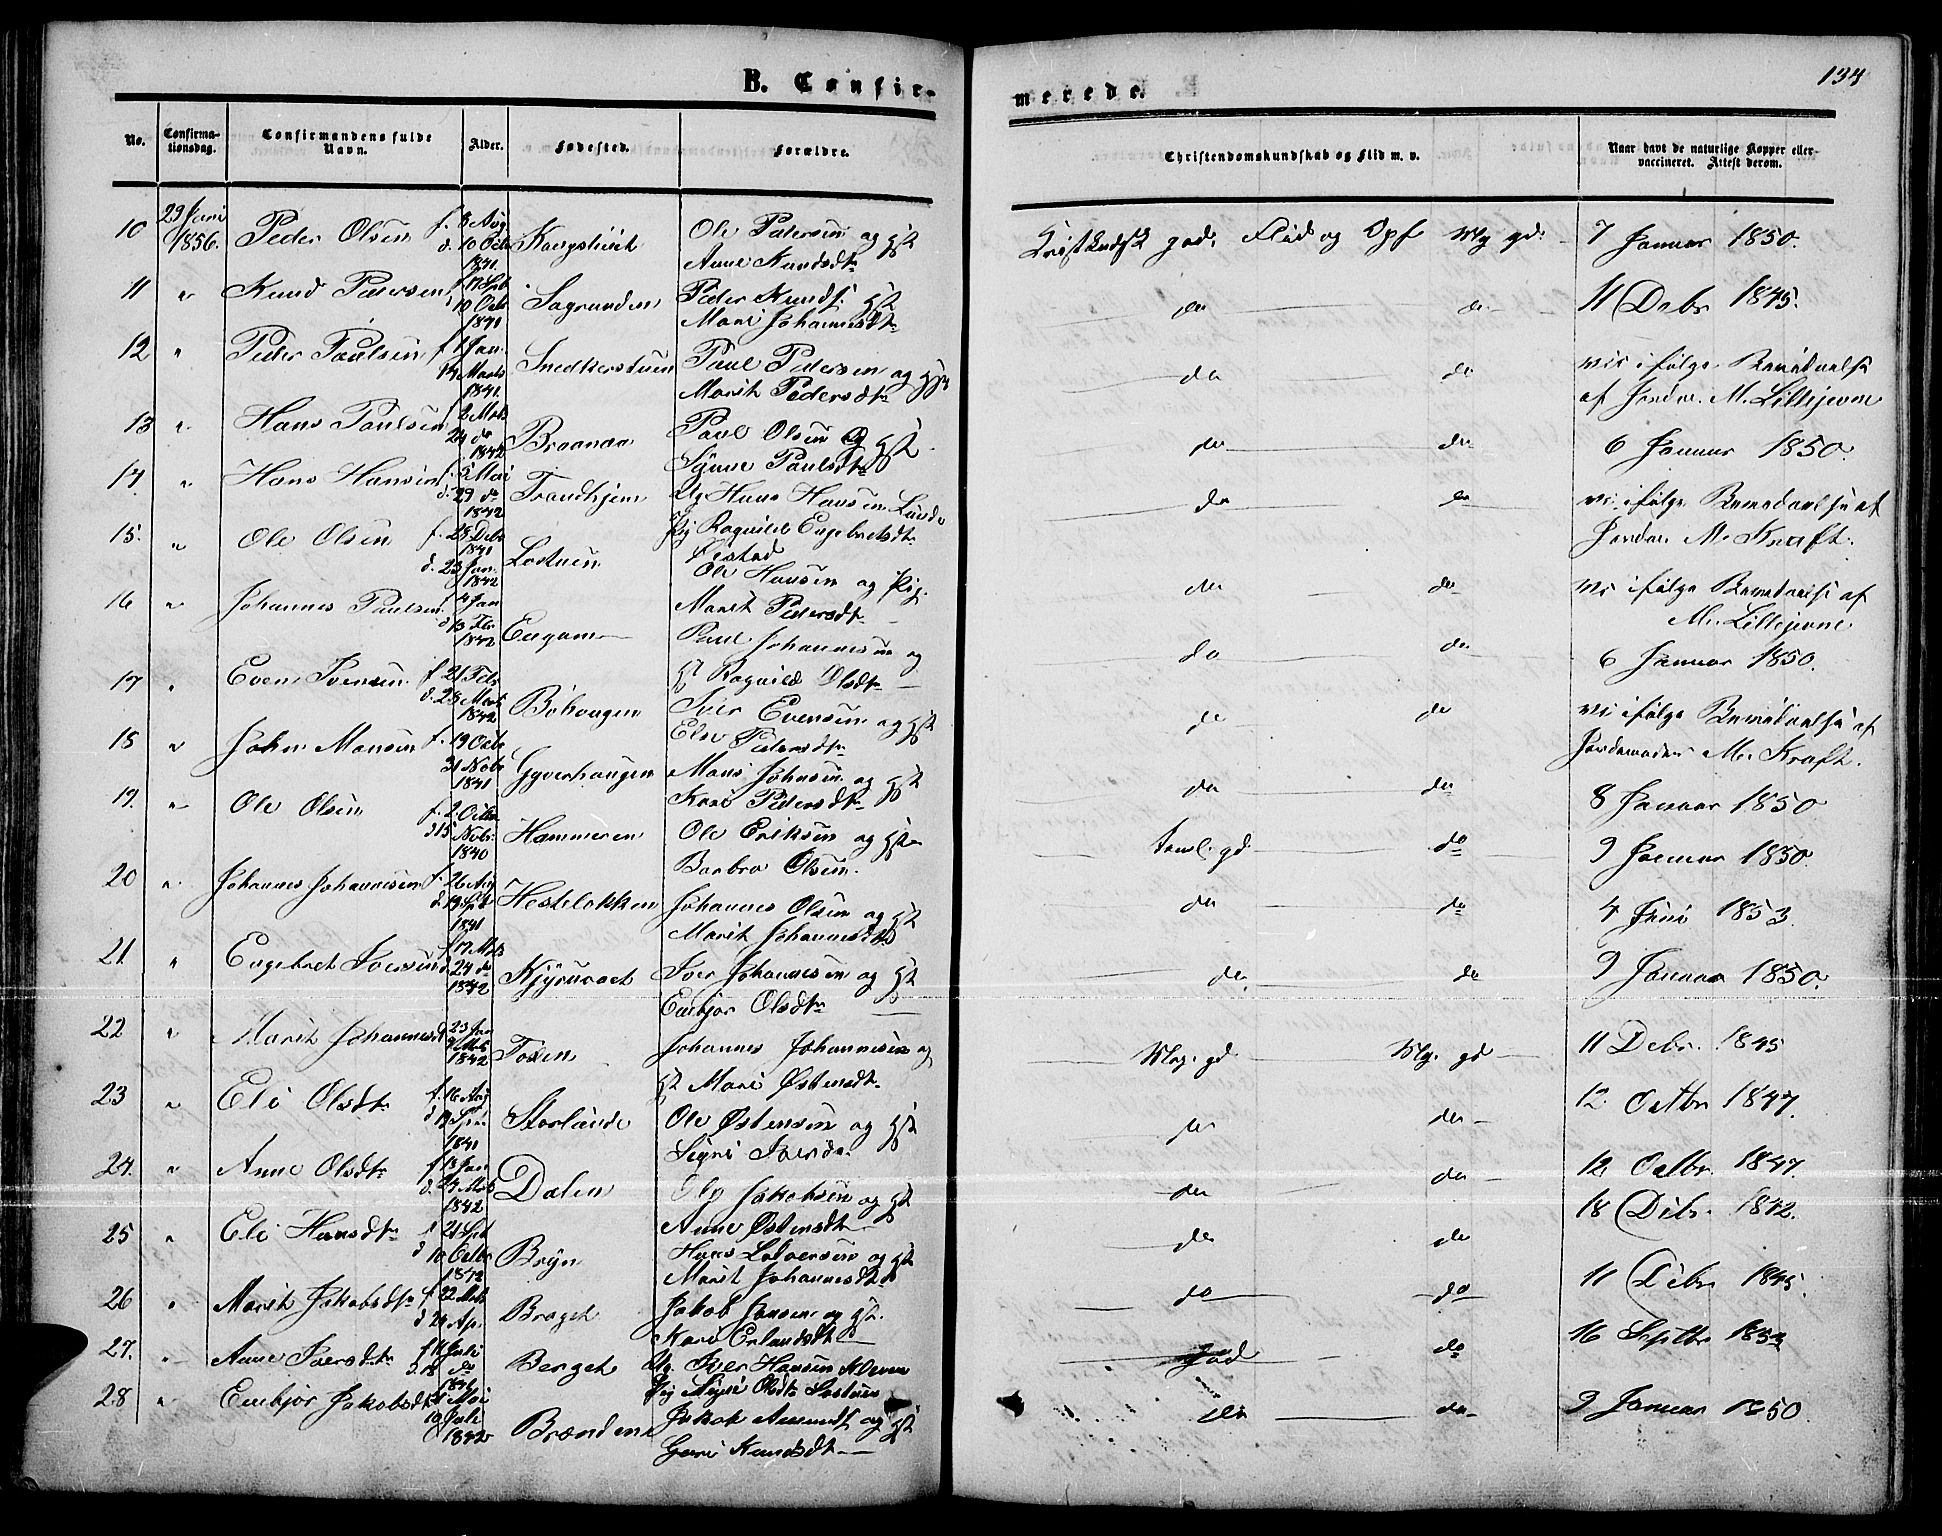 134
B. Confir-
merede.
No.
Confirma-
tionsdag.
Confirmandens fulde
Navn.
Alder.
Fødested.
Forældre.
Christendomskundskab og Flid m. v.
Naar havt de naturlige Kopper eller
vaccineret. Attest derom.
10 29 Juni 1856. Peder Olsen f. 8 Aug d. 10 Octr 1841. Ole Pedersen og gst Anne Knudsdtr Kristkundsk god, Flid og Opf Mg gd. 7 Januar 1850.
11 " Knud Pedersen f 17 Spt 10 Octr 1841 Sagrunden Peder Knuds. gst Mari Johannesdtr do do 11 Debr 1845.
12 " Peder Paulsen f 1 Jan. 14 Marts 1841. Snedkerstuen Paul Pedersen og gst Marit Pedersdtr do do vis ifølge Bemidvelse af Jordm. M. Lillejevne
13 " Hans Paulsen f 2 Mats 24 do 1842 Braanaa Paul Olsen og gst Synne Paulsdtr do do 6 Januar 1850.
14 " Hans Hansen f. 5 Mai d. 29 do 1842 Trondhjem Ug Hans Hansen Lunde Pig Ragnild Engebretsdtr do do vis ifølge af Jordm. M. Kraft.
15. " Ole Olsen f. 28 Debr 1841 d. 23 Jan. 1842 Lostuen Ole Hansen og Pig. Marit Pedersdtr do do vis ifølge af M. Lillejevne
16 " Johannes Paulsen f 4 Jan d 13 Fbr 1842 Engam Paul Johannesen og gst Ragnild Olsdtr do do 6 Januar 1850.
17 " Even Iversen f 21 Febr d. 28 Marts 1842 Bøhaugen Iver Evensen og gst Else Pedersdtr do do vis ifølge af Jordemoder M. Kraft.
18 " John Monsen f. 19 Octbr 31 Nobr 1841 Gyverhaugen Mons Johnsen og gst Kari Pedersdtr do do 8 Januar 1850
19. " Ole Olsen f. 2 Octbr d 15 Nobr. 1840 Hammeren Ole Eriksen og gst Barbro Olsen. teml. gd. do 9 Januar 1850.
20 " Johannes Johannesen f. 26 Aug d. 19 Spt 1841 Hesteløkken Johannes Olsen og gst Marit Johannesdtr do do 4 Juni 1853.
21. " Engebret Iversen f 17 Mats 24 do 1842 Iver Johannesen og gst Embjør Olsdtr do. do 9 Januar 1850.
22 " Marit Johannesd 23 Jan 1842 Foden Johannes Johannesen og gst Mari Østensdtr Meg. gd. Mg. gd 11 Debr. 1845
23 " Eli Olsdtr f. 16 Aug d 19 Spt 1841 Storlunde Ole Østensen og gst Sigri Iversd. do do 12 Octbr 1847.
24. " Anne Olsdtr f. 13 Jan d. 24 Mats 1842 Dalen Ole Jakobsen og gst Anne Østensdtr do do 12 Octbr. 1847.
25 " Eli Hansdtr f 21 Spt d 10 Octbr 1842 Bryn Hans Lovensen og gst Marit Johannesdtr do do 18 Debr. 1842.
26 " Marit Jakobsdtr f 22 Mats d 24 Ap. Braget Jakob Jonsen og gst. Kari Erlandsdtr do do 11 Debr 1845.
27. " Anne Iversdtr f 11 Juli d. 18 do 1841 Berget Ug. Iver Hansen Pig Signe Olsdtr Lostuen God do 16 Septbr 1853
28 " Embjør Jakobsdtr 21 Mai 10 Juli 1842 Brænden Jakob Amundsen og gst Guri Knudsdtr do do 9 Januar 1850.